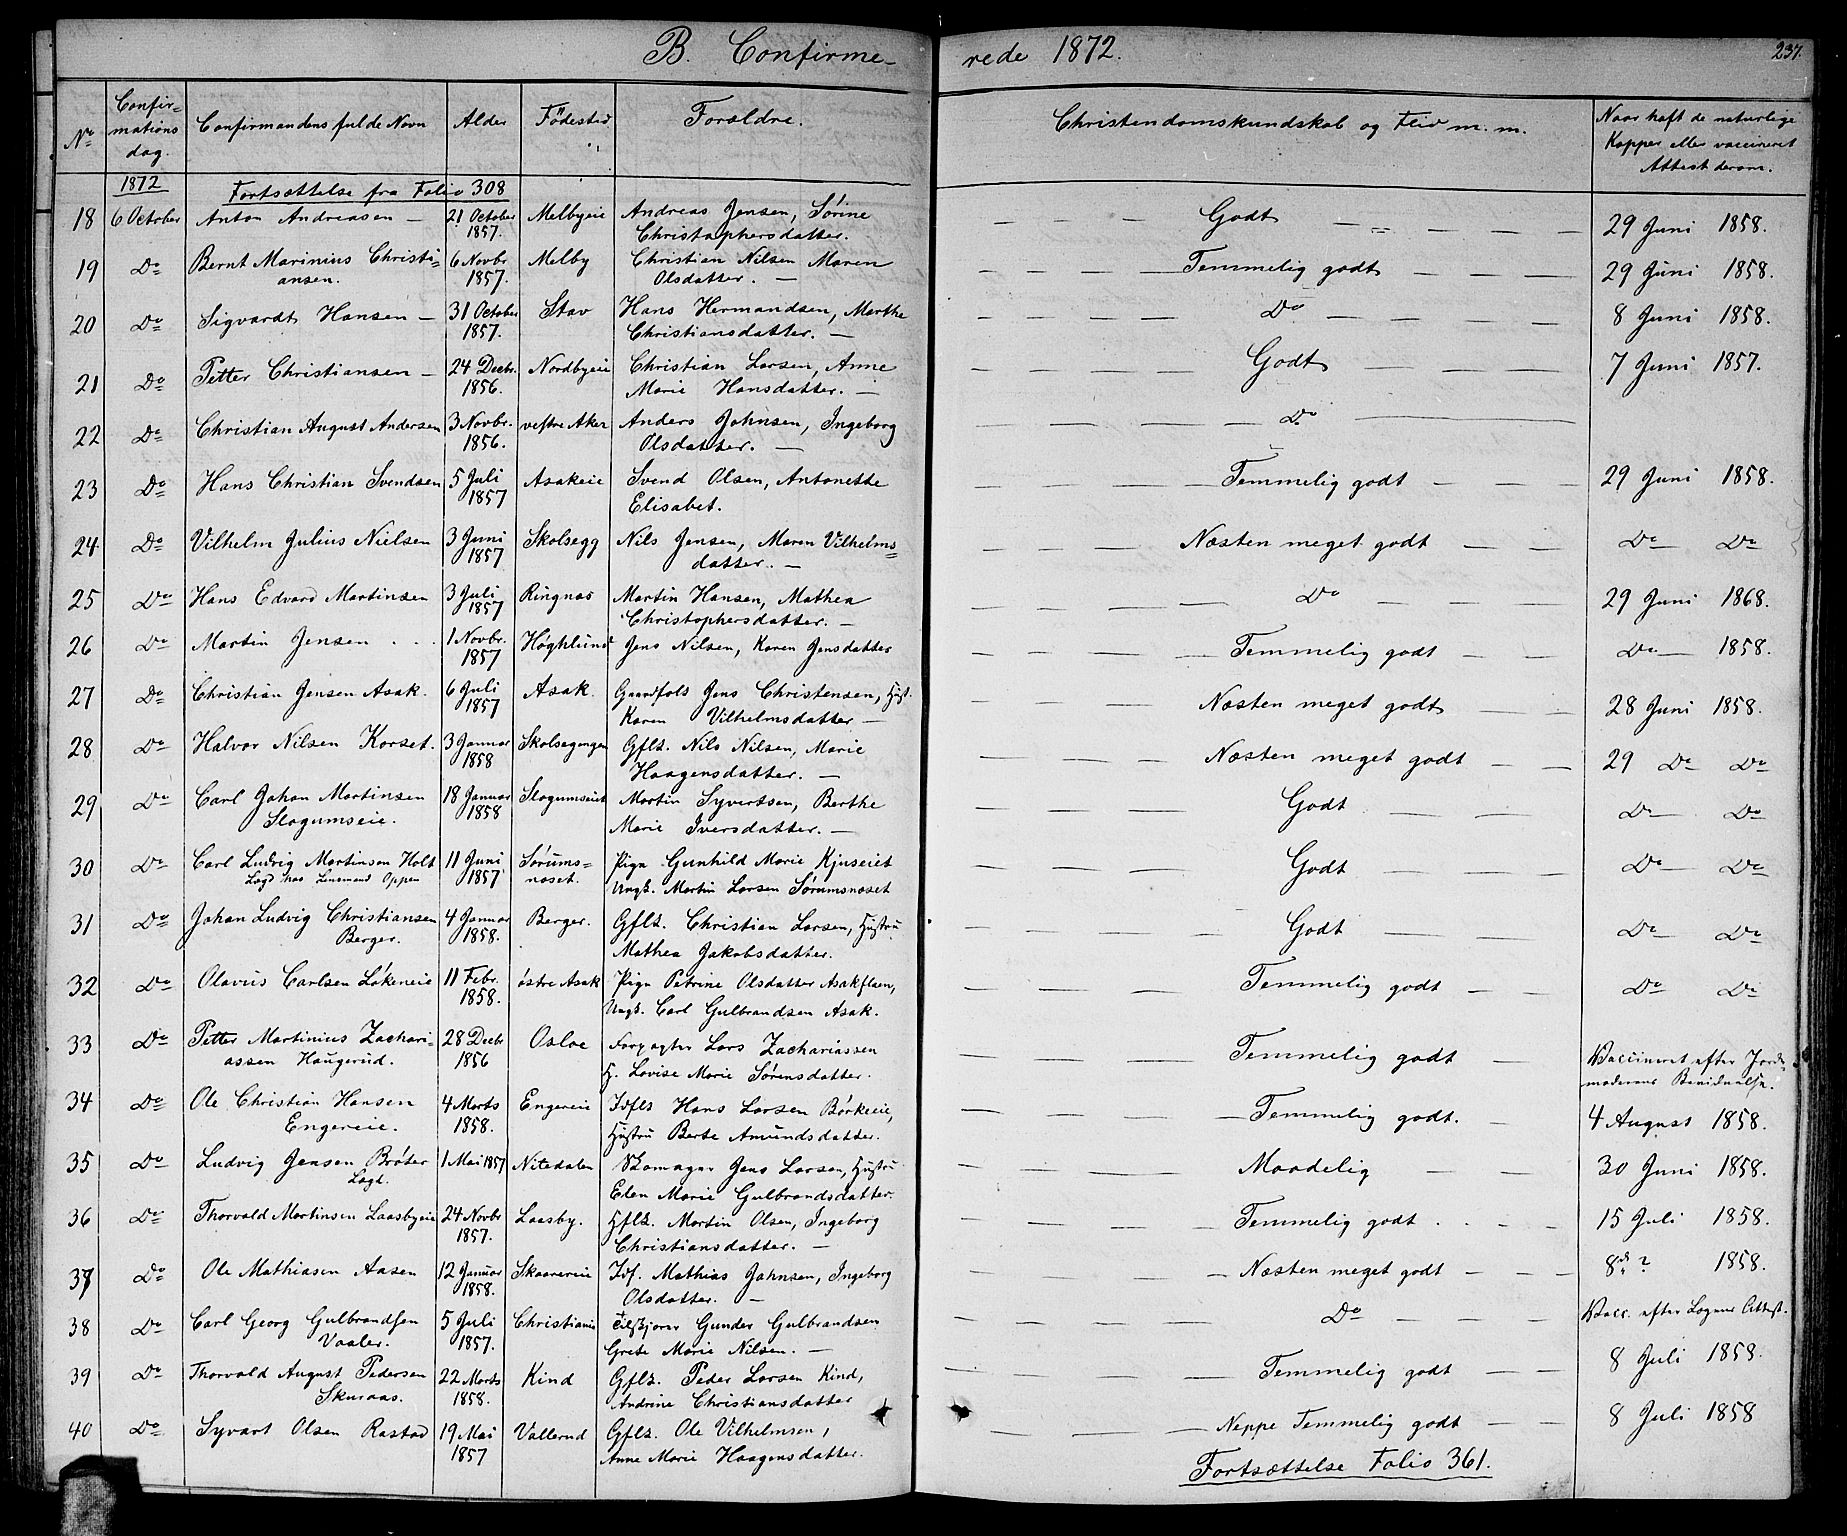 B. Confirmerede 1872.
237.
No
Confirmations dag.
Confirmandens fulde Navn
Alder
Födested
Forældre.
Christendomskundskab og Flid m. m.
Naar haft de naturlige Kopper eller vaccineret Attest derom.
1872
Fortsættelse fra Folio 308
18 6 October Anton Andreasen — 21 October 1857. Melbyeie Andreas Jensen, Sørine Christophersdatter. Godt 29 Juni 1858.
19 Do Bernt Marinius Christiansen. 6 Novbr. 1857. Melby Christian Nilsen Maren Olsdatter. — Temmelig godt 29 Juni 1858.
20 Do Sigvardt Hansen — 31 October 1857. Stav Hans Hermandsen, Marthe Christiansdatter. — Do 8 Juni 1858.
21 Do Petter Christiansen — 24 Decbr. 1856. Nordbyeie Christian Larsen, Anne Marie Hansdatter. — Godt 7 Juni 1857.
22 Do Christian August Andersen 3 Novbr. 1856. vestre Aker Anders Johnsen, Ingeborg Olsdatter. — Do
23 Do Hans Christian Svendsen 5 Juli 1857 Asakeie Svend Olsen, Antonette Elisabet. Temmelig godt 29 Juni 1858.
24 Do Vilhelm Julius Nielsen 3 Juni 1857 Skolsegg Nils Jensen, Maren Vilhelmsdatter. — Næsten meget godt Do Do
25 Do Hans Edvard Martinsen 3 Juli 1857 Ringnas Martin Hansen, Mathea Christophersdatter. — Do 29 Juni 1868.
26 Do Martin Jensen 1 Novbr. 1857 Høghlund Jens Nilsen, Karen Jensdatter Temmelig godt Do 1858.
27 Do Christian Jensen Asak. 6 Juli 1857 Asak. Gaardfols Jens Christensen, Hust. Karen Vilhelmsdatter — Næsten meget godt 28 Juni 1858.
28 Do Halvor Nilsen Korset. 3 Januar 1858 Skolsegengen Gflk. Nils Nilsen, Marie Haagensdatter. — Næsten meget godt 29 Do Do
29 Do Carl Johan Martinsen Slogumseie. 18 Januar 1858 Slogumseiet Martin Syvertsen, Berthe Marie Iversdatter. — Godt Do Do
30 Do Carl Ludvig Martinsen Holt Lagd hos Linemand Oppen 11 Juni 1857 Sørumsnæset. Pige Gunhild Marie Kjuseiet Ungk. Martin Larsen Sørumsnæset Godt Do Do
31 Do Johan Ludvig Christiansen Berger. 4 Januar 1858. Berger. Gflk. Christian Larsen, Hustru Mathea Jakobsdatter. Godt Do Do
32 Do Olavus Carlsen Løkeneie 11 Febr. 1858. østre Asak Pige Petrine Olsdatter Asakflaen, Ungk. Carl Gulbrandsen Asak. Temmelig godt Do Do
33 Do Petter Martinius Zachariassen Haugerud. 28 Decbr 1856 Osloe Forpagter Lars Zachariassen H. Lovise Marie Sørensdatter. Temmelig godt Vaccineret efter Jordemoderens Bevidnelse.
34 Do Ole Christian Hansen Engereie. 4 Marts 1858. Engereie Idflk Hans Larsen Børkeeie, Hustru Berte Amundsdatter. Temmelig godt. 4 August 1858.
35 Do Ludvig Jensen Bråter Lagd. 1 Mai 1857 Nitedalen Skomager Jens Larsen, Hustru Elen Marie Gulbrandsdatter. Maadelig 30 Juni 1858.
36 Do Thorvald Martinsen Laasbyeie 24 Novbr 1857. Laasby. Gflk. Martin Olsen, Ingeborg Christiansdatter. — Temmelig godt 15 Juli 1858.
37 Do Ole Mathiasen Aasen 12 Januar 1858. Skaarereie Idf. Mathias Johnsen, Ingeborg Olsdatter. — Næsten meget godt 8de ? 1858.
38 Do Carl Georg Gulbrandsen Vaaler. 5 Juli 1857. Christiania Feilskjører Gunder Gulbrandsen Grete Marie Nilsen. — Do Vacc. efter Lægens Attest.
39 Do Thorvald August Pedersen Skuraas. 22 Marts 1858. Kind Gflk. Peder Larsen Kind, Andrine Christiansdatter Temmelig godt 8 Juli 1858.
40 Do Syvart Olsen Rastad 19 Mai 1857 Vallerud Gflk. Ole Vilhelmsen, Anne Marie Haagensdatter. Neppe Temmelig godt 8 Juli 1858
Fortsættelse Folio 361.